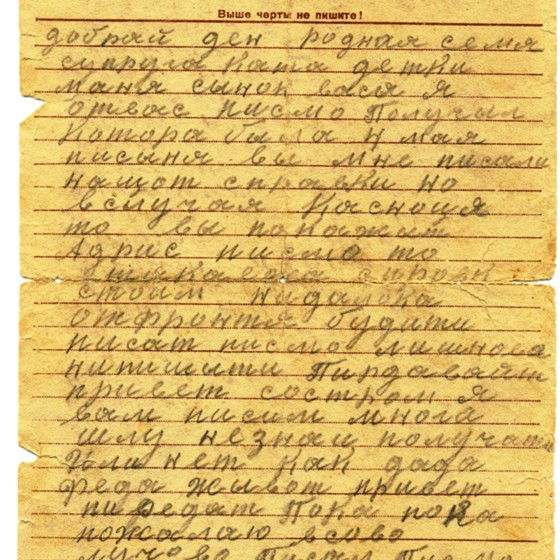 Выше черты не пишите!
добрай ден родная семя
супруга Катя детки
маня сынок вася я
отвас писмо Получил
Котора была 4 мая
писыня вы мне писали
нащот справки но
вслучая Касноця
то вы покажит
Адрис писмо то
стоим нидалёка
отфронтя будити
писат писмо лишнова
нипишити Пирдавайти
привет состром я
вам писим многа
шлу незнаи получати
Или нет Как дада
Федя живот привет
пиредат Пока пока
пожалаю всово